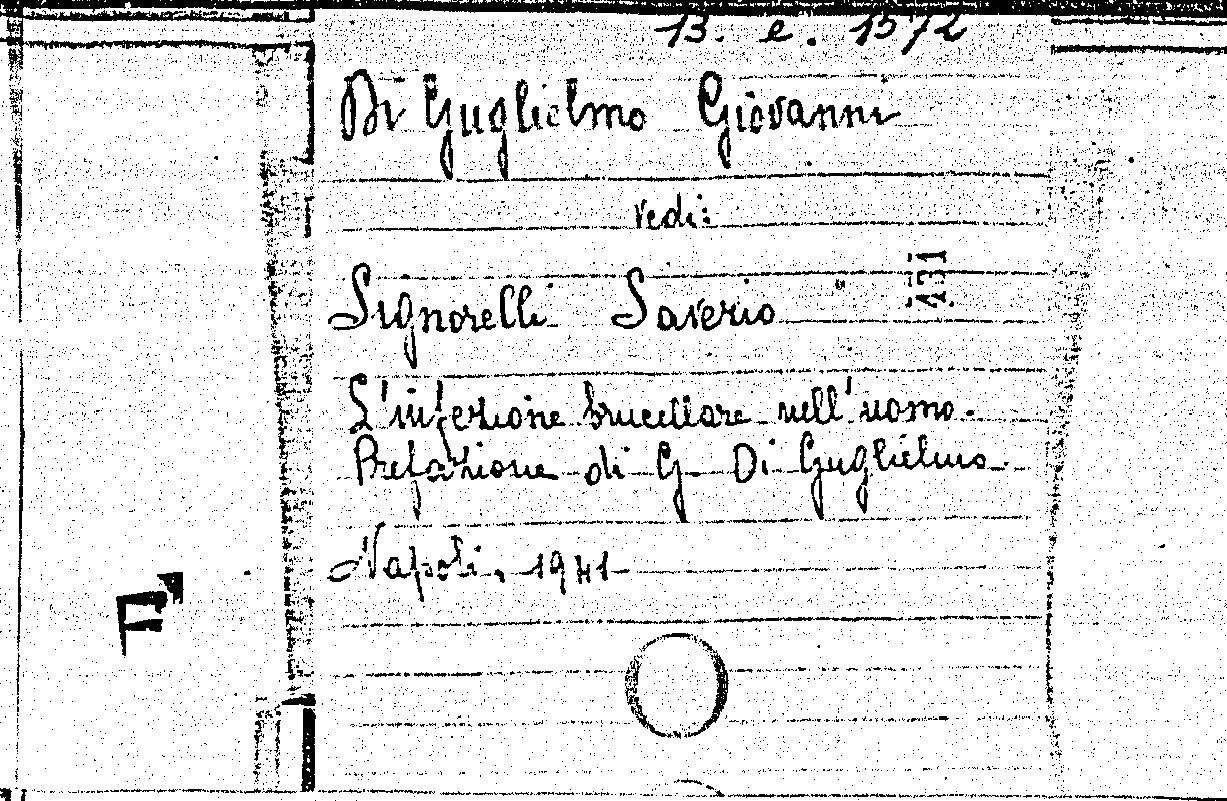 13. e. 1572
Di Guglielmo Giovanni
vedi:
Signorelli Saverio
L'infezione brucellare nell'uomo.
Prefazione di G. Di Guglielmo.
Napoli, 1941